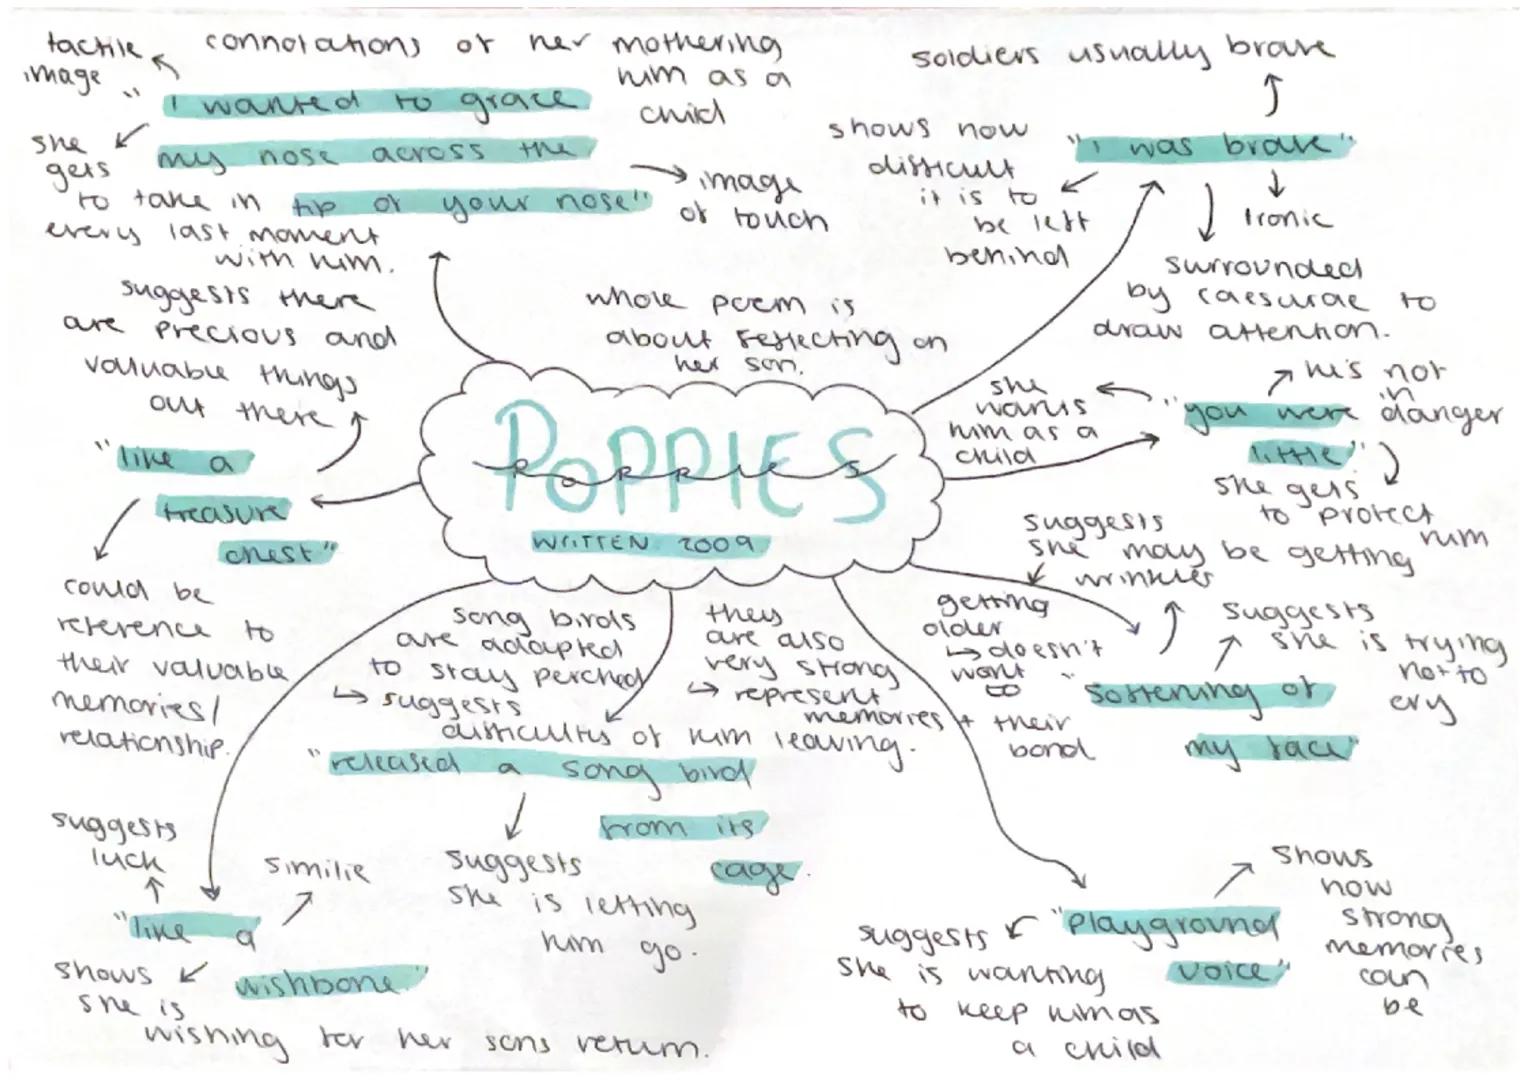 tactile
image
connotations of her mothering
him as a
child
"I wanted to graze
my nose across the
tip of your nose"
she
gets
to take in
every last moment
with him.
image
of touch
soldiers usually brave
"i was brave"
shows how
difficult
it is to
be left
behind
Ironic
surrounded
by caesurae to
draw attention.
suggests there
are precious and
valuable things
out there
"like a
treasure
chest"
could be
reference to
their valuable
memories/
relationship.
whole poem is
about reflecting on
her son.
POPPIES
Poppies
WRITTEN: 2009
she
wants
him as a
child
he's not
in
danger
"you were
little"
she gets
to protect
him
suggests
she may be getting
wrinkles
getting
older
↳ doesn't
want
to
suggests
she is trying
not to
cry
"softening of
my face"
song birds
are adapted
to stay perched
↳ suggests
difficulties of him leaving.
they
are also
very strong
↳ represent
memories + their
bond
"released a song bird
from its
cage.
suggests
she is letting
him go.
suggests
luck
similie
"like a
wishbone"
shows
she is
wishing for her sons return.
"playground
voice"
suggests
she is wanting
to keep him as
a child
shows
how
strong
memories
can
be